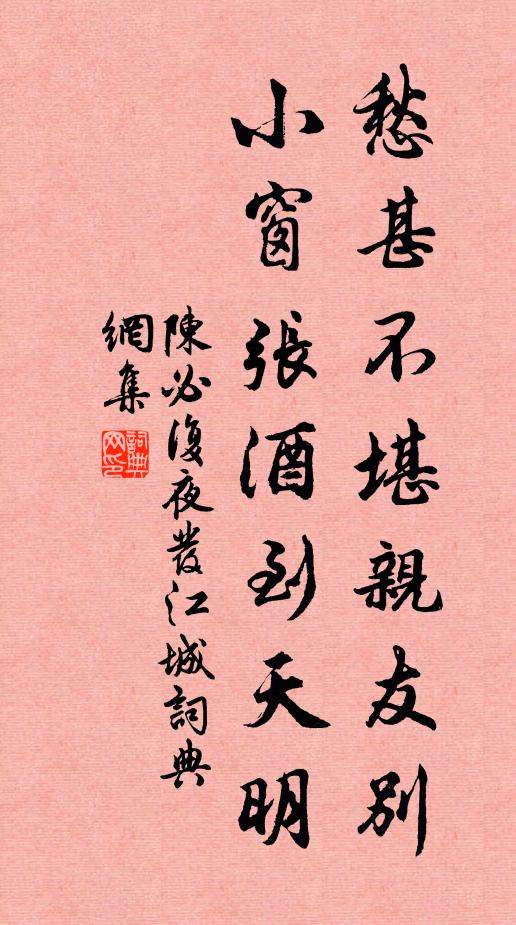 愁甚不堪親友別
小窗張酒到天明
陳必復夜發江城詞典
網集
詞典
网印